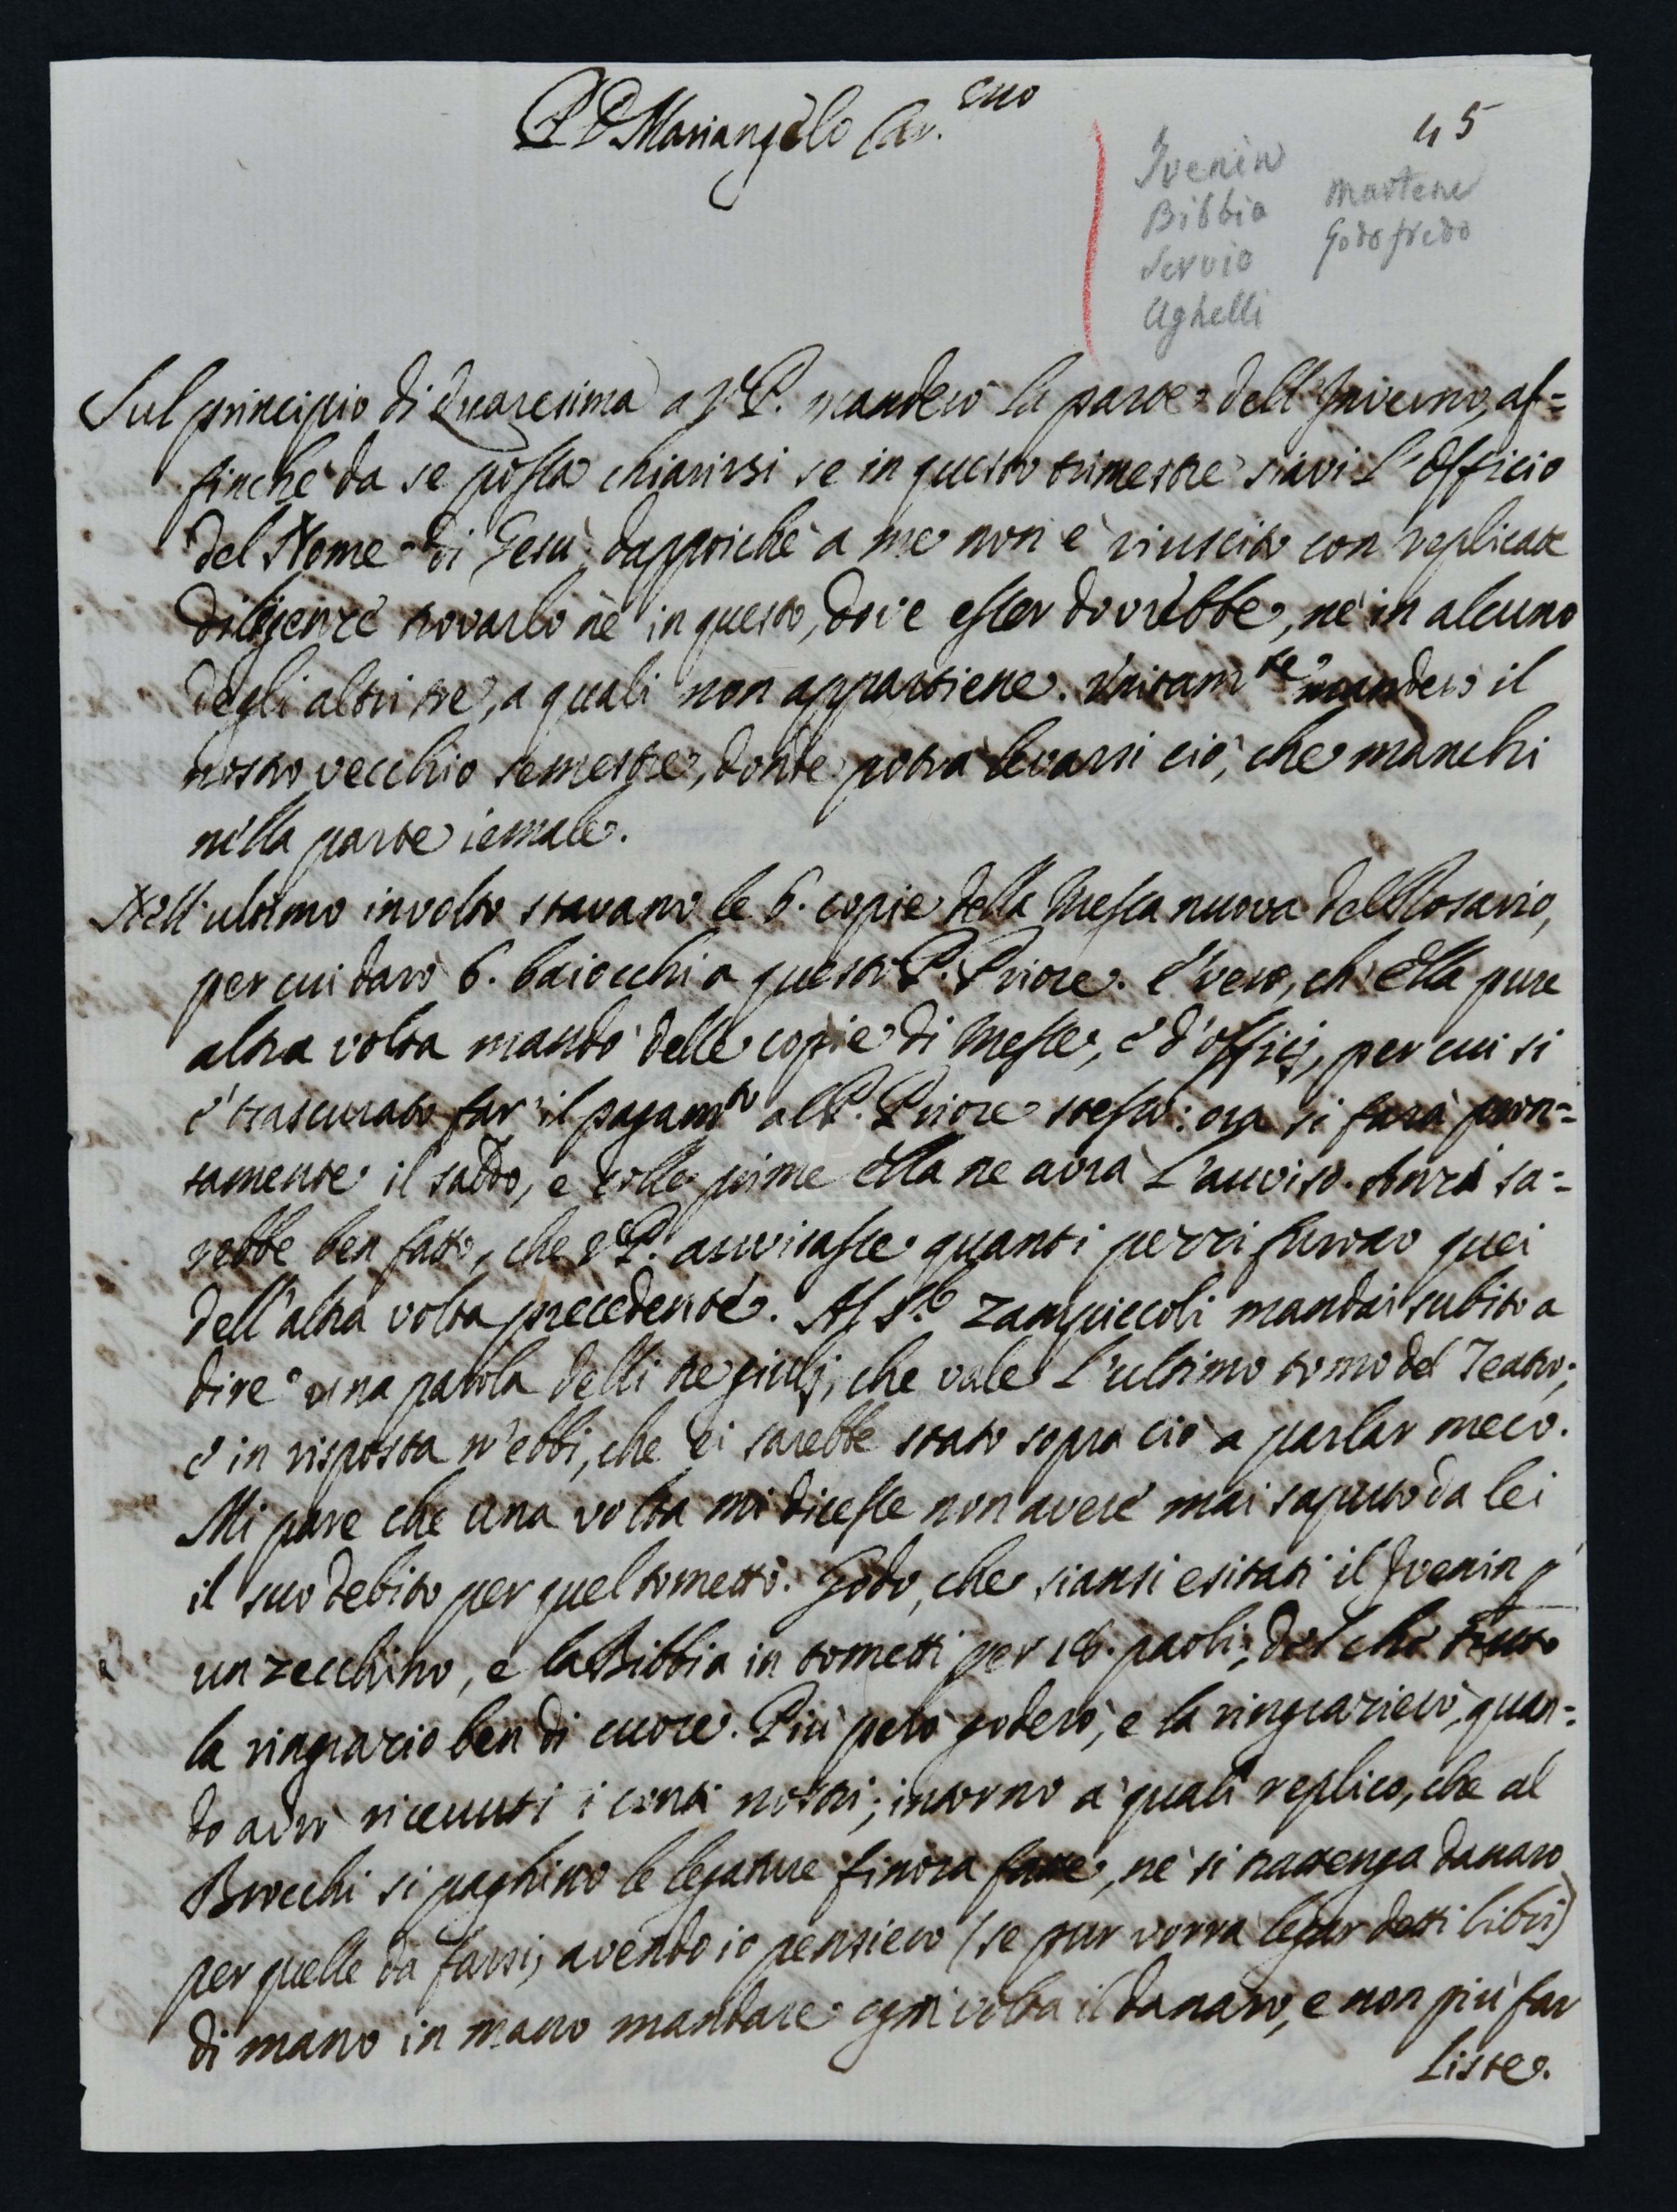 P D Mariangelo Car.mo
45
Ivenin
Bibbia
Servio
Ughelli
Martene
Godofredo
Sul principio di Quaresima a V. P. manderò la parte dell'Inverno, af=
finchè da se possa chiarirsi se in questo trimestre siavi l'Officio
del Nome di Gesù; dappoichè a me non è riuscito con replicate
diligenze trovarlo nè in questo, dove esser dovrebbe, nè in alcuno
degli altri tre, a quali non appartiene. Unitam.te manderò il
nostro vecchio semestre, donde potrà levarsi ciò, che manchi
nella parte iemale.
Nell'ultimo involto stavano le 6. copie della Messa nuova del Rosario,
per cui darò 6. baiocchi a questo P. Priore. È vero, ch'Ella pure
altra volta mandò delle copie di Messe, e d'officj, per cui si
è trascurato far il pagam.to al P. Priore stesso: ora si farà pron=
tamente il saldo, e colle prime Ella ne avrà l'avviso. Anzi sa=
rebbe ben fatto, che V. P. avvisasse quanti pezzi furono quei
dell'altra volta precedente. Al S.r Zampiccoli mandai subito a
dire una parola delli tre giulj, che vale l'ultimo tomo del Teatro;
e in risposta n'ebbi, che ei sarebbe stato sopra ciò a parlar meco.
Mi pare che una volta mi dicesse non avere mai saputo da lei
il suo debito per quel tometto. Godo, che siansi esitati il Ivenin p
un zecchino, e la Bibbia in tometti per 16. paoli; del che tutto
la ringrazio ben di cuore. Più però goderò, e la ringrazierò, quan=
do avrò ricevuti i conti nostri; intorno a quali replico, che al
Brocchi si paghino le legature finora fatte, nè si trattenga danaro
per quelle da farsi, avendo io pensiero (se pur vorrà legar detti libri)
di mano in mano mandare ogni volta il danaro, e non più far
liste.